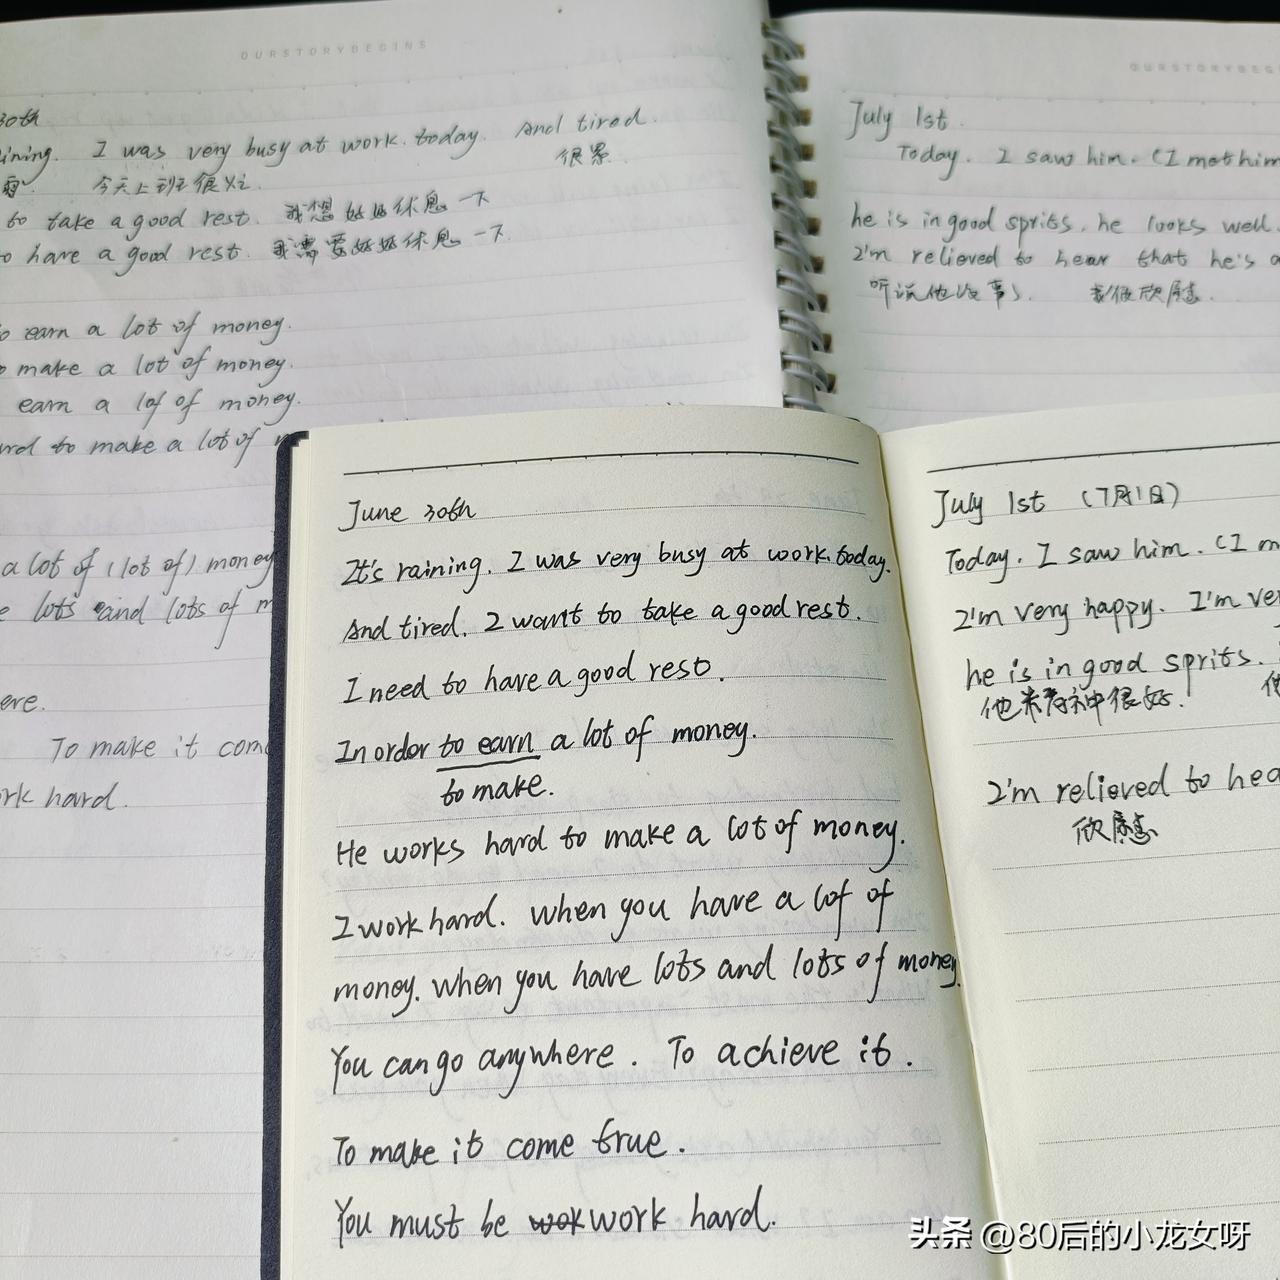 OURSTORYBEGINS
30th
ining. I was very busy at work. today. And tired.
雨. 今天上班很忙. 很累.
to take a good rest. 我想好好休息一下
to have a good rest. 我需要好好休息一下.
to earn a lot of money.
to make a lot of money.
earn a lof of money.
ard to make a lot of
a lot of (lot of) money
e lots and lots of m
ere.
To make it come
rk hard.
OURSTORYBEGI
July 1st.
Today. I saw him. (I met him
he is in good sprits. he looks well.
I'm relieved to hear that he's a
听说他没事. 我很欣慰.
June 30th
It's raining. I was very busy at work. today.
And tired. I want to take a good rest.
I need to have a good rest.
In order to earn a lot of money.
to make.
He works hard to make a lot of money.
I work hard. when you have a lof of
money. when you have lots and lots of money.
You can go anywhere. To achieve it.
To make it come true.
You must be wok work hard.
July 1st (7月1日)
Today. I saw him. (I m
I'm very happy. I'm ve
he is in good sprits.
他精神很好. 他
I'm relieved to hea
欣慰
头条 @80后的小龙女呀